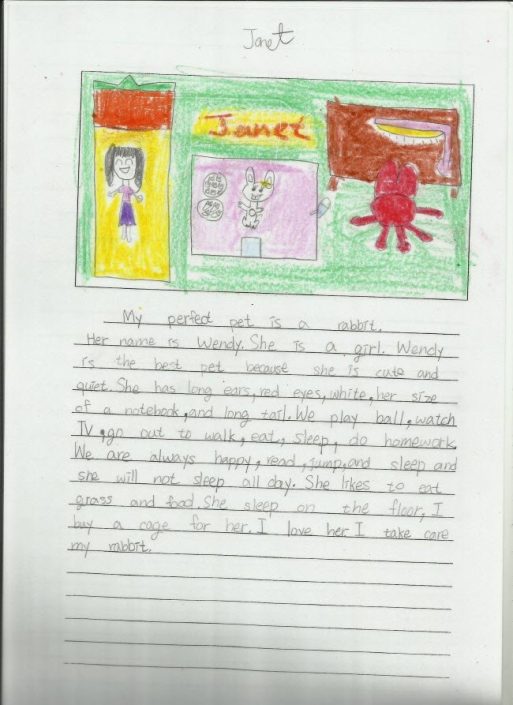 Janet
Janet
My perfect pet is a rabbit.
Her name is Wendy. She is a girl. Wendy
is the best pet because she is cute and
quiet. She has long ears, red eyes, white, her size
of a notebook, and long tail. We play ball, watch
TV, go out to walk, eat, sleep, do homework.
We are always happy, read, jump, and sleep and
she will not sleep all day. She likes to eat
grass and food. She sleep on the floor, I
buy a cage for her. I love her. I take care
my rabbit.